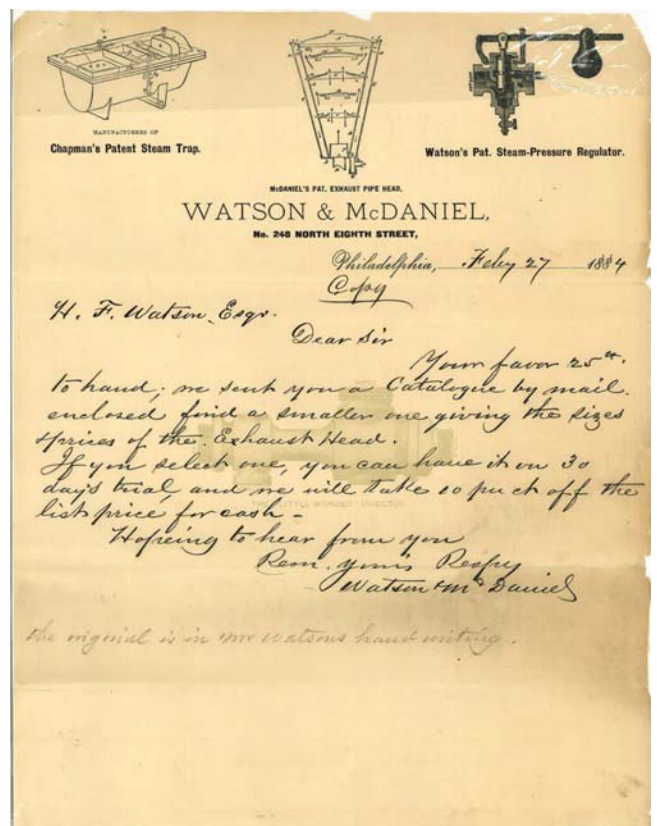 MANUFACTURERS OF
Chapman's Patent Steam Trap.
McDANIEL'S PAT. EXHAUST PIPE HEAD,
Watson's Pat. Steam-Pressure Regulator.
WATSON & McDANIEL,
No. 248 NORTH EIGHTH STREET,
Philadelphia, Feby 27 1884
Copy
H. F. Watson, Esqr.
Dear Sir
Your favor 25th.
to hand; we sent you a Catalogue by mail.
enclosed find a smaller one giving the sizes
& prices of the Exhaust Head.
If you select one, you can have it on 30
days trial, and we will take 10 pr ct off the
list price for cash -
Hopeing to hear from you
Rem. yours Respy
Watson & McDaniel
the original is in Mr Watsons hand writing.
THE "LITTLE WONDER" INJECTOR